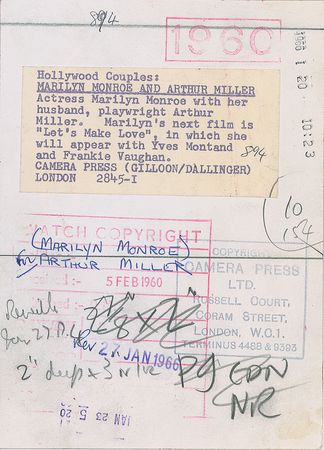 894
1960
1960 1 20 10:23
Hollywood Couples:
MARILYN MONROE AND ARTHUR MILLER
Actress Marilyn Monroe with her
husband, playwright Arthur
Miller. Marilyn's next film is
"Let's Make Love", in which she
will appear with Yves Montand
and Frankie Vaughan.
894
CAMERA PRESS (GILLOON/DALLINGER)
LONDON 2845-I
10
154
WATCH COPYRIGHT
(MARILYN MONROE)
ARTHUR MILLER
5 FEB 1960
COPYRIGHT
CAMERA PRESS
LTD.
RUSSELL COURT,
CORAM STREET,
LONDON, W.C.1.
TERMINUS 4488 & 9393
Jan 27
Rev 27 JAN 1966
2" deep
Pg EDN
NR
JAN 23 5 20